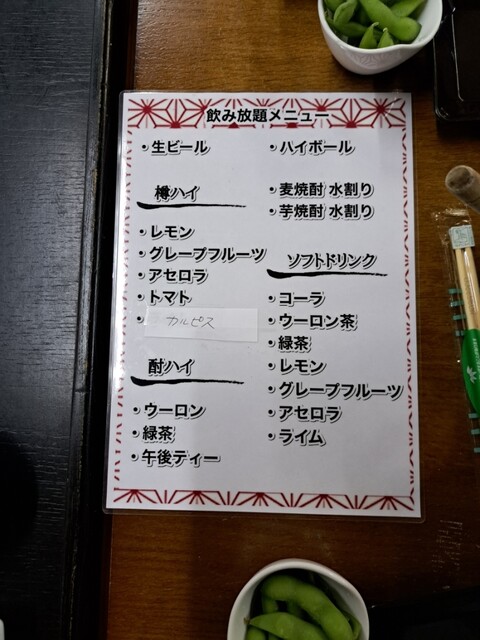 飲み放題メニュー
・生ビール
樽ハイ
・レモン
・グレープフルーツ
・アセロラ
・トマト
・カルピス
酎ハイ
・ウーロン
・緑茶
・午後ティー
・ハイボール
・麦焼酎 水割り
・芋焼酎 水割り
ソフトドリンク
・コーラ
・ウーロン茶
・緑茶
・レモン
・グレープフルーツ
・アセロラ
・ライム